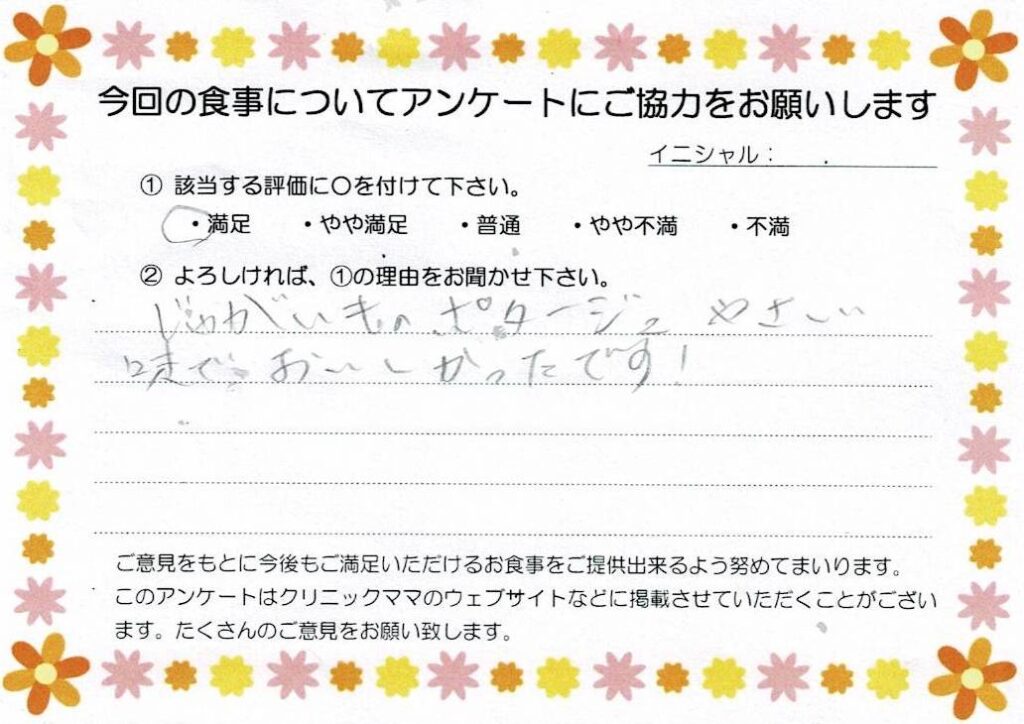 今回の食事についてアンケートにご協力をお願いします
イニシャル： .
① 該当する評価に〇を付けて下さい。
・満足 ・やや満足 ・普通 ・やや不満 ・不満
② よろしければ、①の理由をお聞かせ下さい。
じゃがいものポタージュ やさしい
味で おいしかったです！
ご意見をもとに今後もご満足いただけるお食事をご提供出来るよう努めてまいります。
このアンケートはクリニックママのウェブサイトなどに掲載させていただくことがござい
ます。たくさんのご意見をお願い致します。